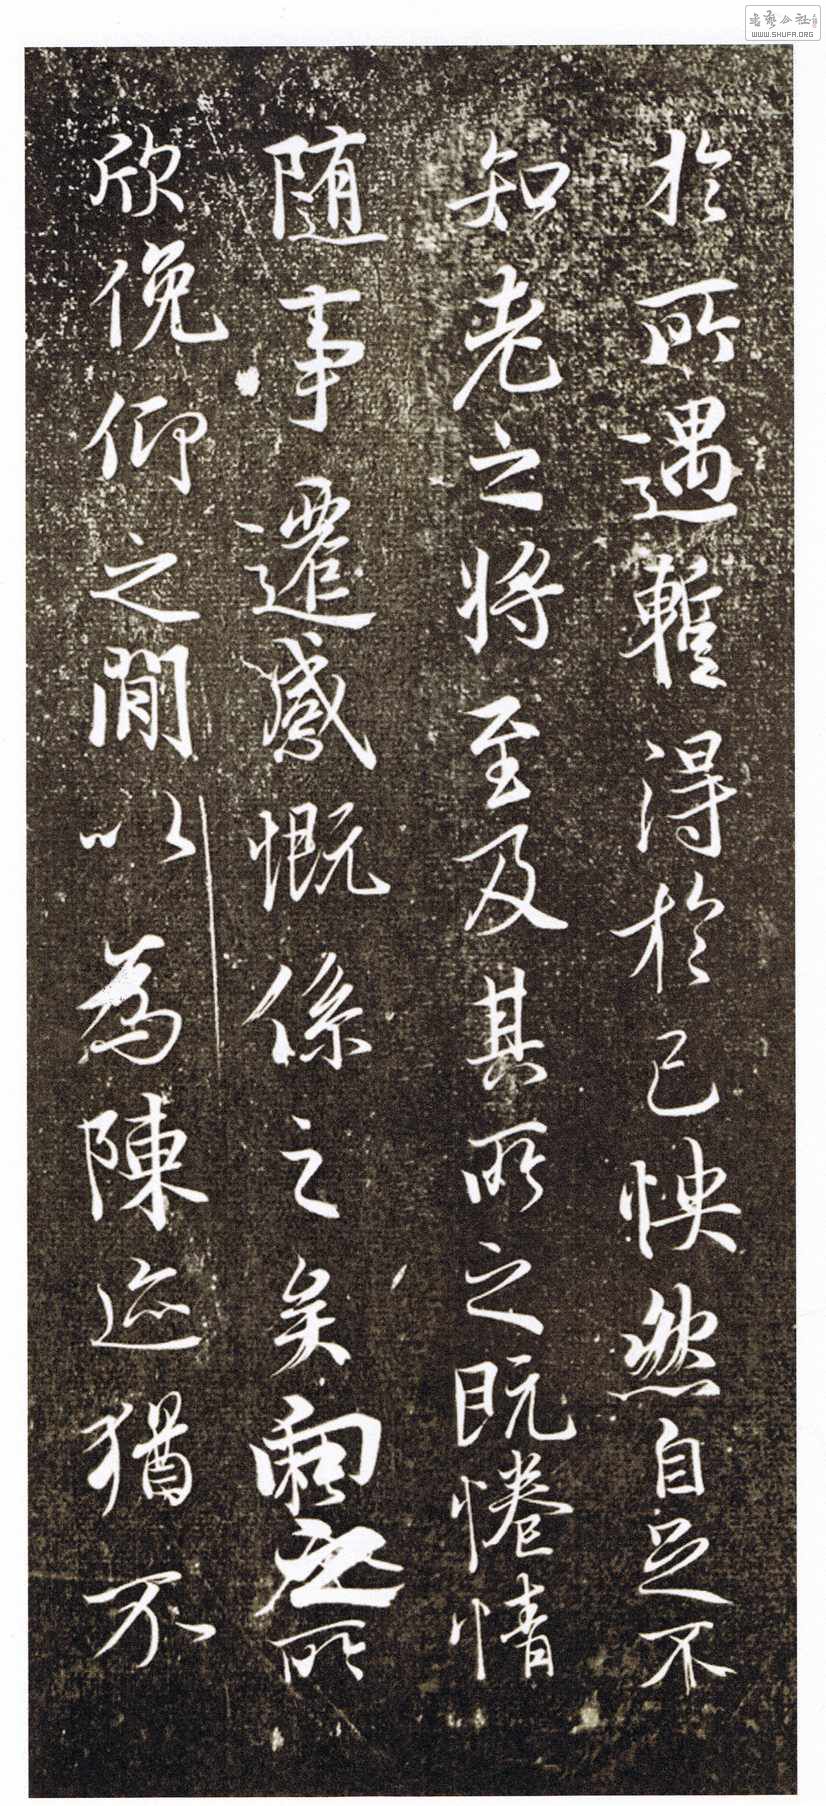 書藝公社
WWW.SHUFA.ORG
於所遇暫得於己怏然自足不
知老之将至及其所之既惓情
随事遷感慨係之矣向之所
欣俛仰之閒以為陳迹猶不